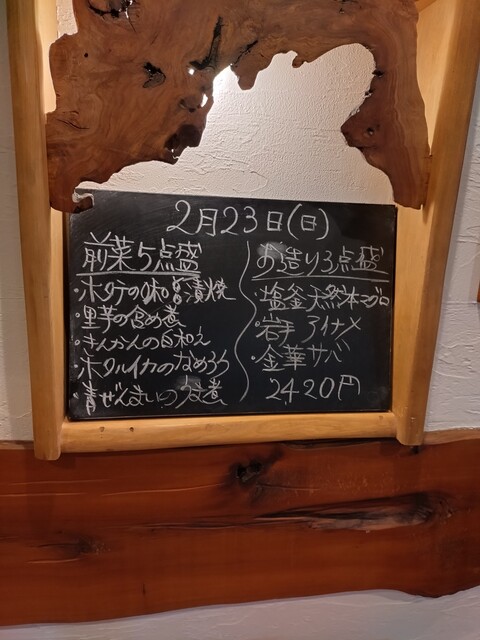 2月23日(日)
前菜5点盛
・ホタテの味噌漬焼
・里芋の含め煮
・きんかんの白和え
・ホタルイカのなめろう
・青ぜんまいの含煮
お造り3点盛
・塩釜天然本マグロ
・岩手アイナメ
・金華サバ
2420円